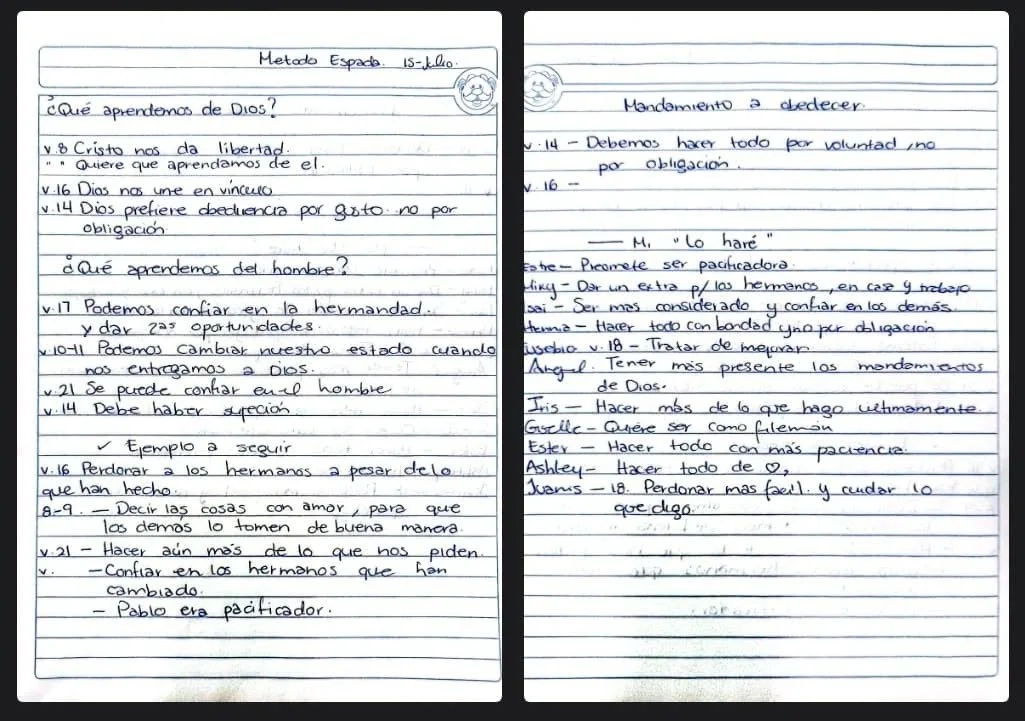 Metodo Espada. 15-Julio.
¿Qué aprendemos de Dios?
v.8 Cristo nos da libertad.
" " Quiere que aprendamos de el.
v.16 Dios nos une en vínculo
v.14 Dios prefiere obediencia por gusto no por
obligación
¿Qué aprendemos del hombre?
v.17 Podemos confiar en la hermandad.
y dar 2as oportunidades.
v.10-11 Podemos cambiar nuestro estado cuando
nos entregamos a Dios.
v.21 Se puede confiar en el hombre
v.14 Debe haber sujeción
✓ Ejemplo a seguir
v.16 Perdonar a los hermanos a pesar de lo
que han hecho.
8-9. — Decir las cosas con amor, para que
los demás lo tomen de buena manera.
v.21 — Hacer aún más de lo que nos piden.
v. — Confiar en los hermanos que han
cambiado.
— Pablo era pacificador.
Mandamiento a obedecer.
v.14 — Debemos hacer todo por voluntad, no
por obligación.
v.16 —
— Mi "Lo haré"
— Promete ser pacificadora.
— Dar un extra p/ los hermanos, en casa y trabajo
— Ser mas considerado y confiar en los demás
— Hacer todo con bondad y no por obligación
Eusebio v.18 — Tratar de mejorar.
Angel. Tener más presente los mandamientos
de Dios.
Iris — Hacer más de lo que hago ultimamente.
Giselle — Quiere ser como filemón
Ester — Hacer todo con más paciencia.
Ashley — Hacer todo de ♡,
— 18. Perdonar mas facil. y cuidar lo
que digo.